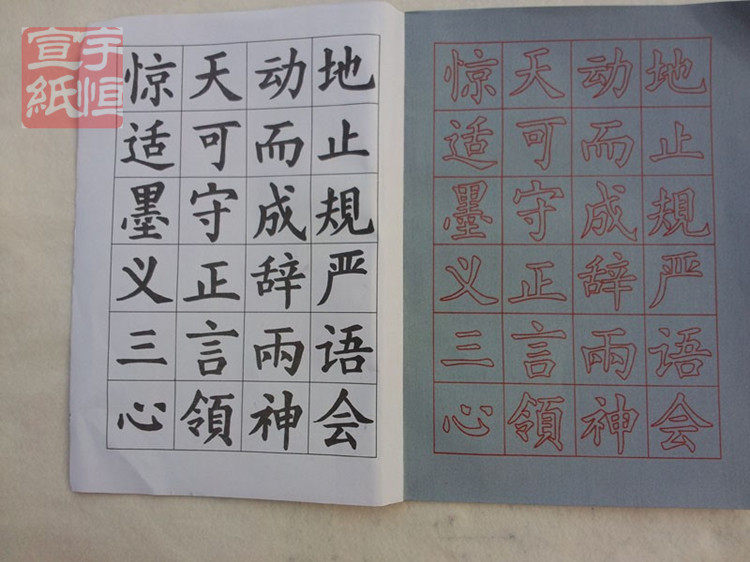 宇恒
宣紙
惊天动地
适可而止
墨守成規
义正辞严
三言兩语
心領神会
惊天动地
适可而止
墨守成規
义正辞严
三言兩语
心領神会